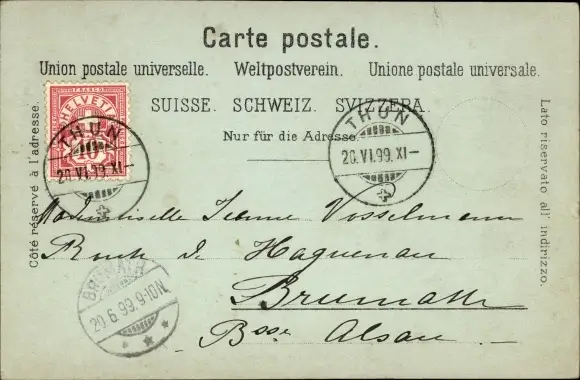 Carte postale.
Union postale universelle. Weltpostverein. Unione postale universale.
SUISSE. SCHWEIZ. SVIZZERA.
Nur für die Adresse.
Côté réservé à l'adresse.
Lato riservato all' indirizzo.
FRANCO
HELVETIA
10
THUN
20.VI.99.XI–
THUN
20.VI.99.XI–
Mademoiselle Jeanne Vosselmann
Route de Haguenau
Brumath
Bsse Alsace
BRUMATH
20.6.99.9-10N.